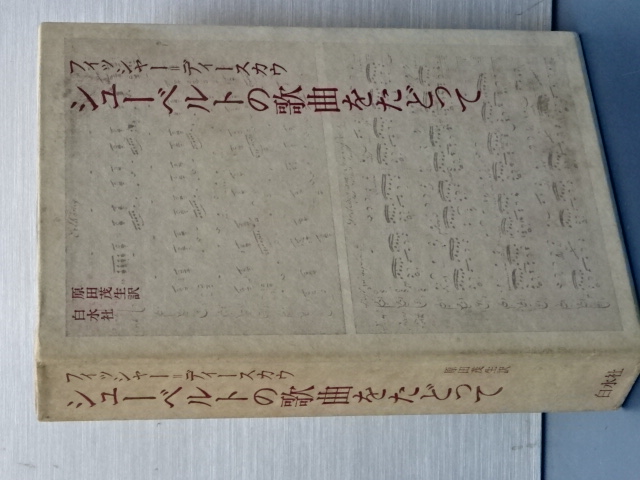 フィッシャー=ディースカウ
シューベルトの歌曲をたどって
原田茂生訳
白水社
フィッシャー=ディースカウ
シューベルトの歌曲をたどって
原田茂生訳
白水社